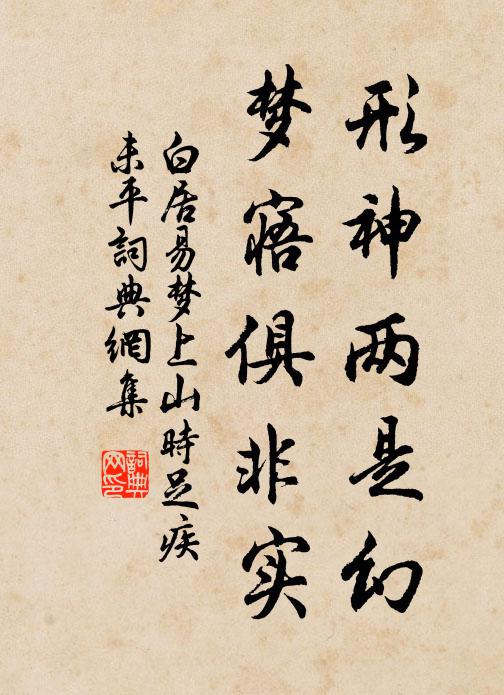 形神两是幻
梦寤俱非实
白居易梦上山時足疾
未平詞典網集
詞典
网印